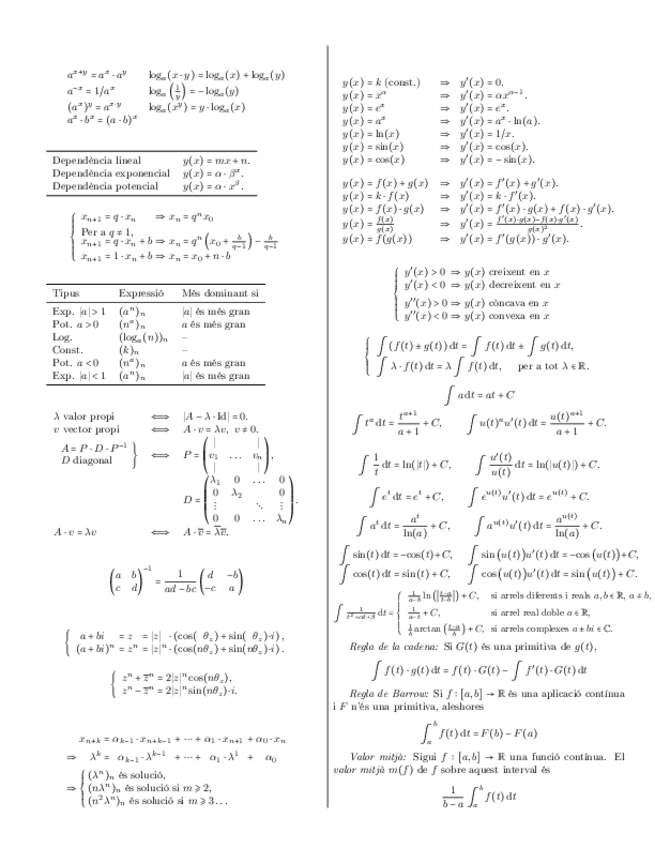 a^{x+y} = a^x · a^y   log_a(x · y) = log_a(x) + log_a(y)
a^{-x} = 1/a^x   log_a(1/y) = −log_a(y)
(a^x)^y = a^{x·y}   log_a(x^y) = y · log_a(x)
a^x · b^x = (a · b)^x
Dependència lineal   y(x) = mx + n.
Dependència exponencial   y(x) = α · β^x.
Dependència potencial   y(x) = α · x^β.
x_{n+1} = q · x_n   ⇒ x_n = q^n x_0
Per a q ≠ 1,
x_{n+1} = q · x_n + b ⇒ x_n = q^n (x_0 + b/(q−1)) − b/(q−1)
x_{n+1} = 1 · x_n + b ⇒ x_n = x_0 + n · b
Tipus   Expressió   Més dominant si
Exp. |a| > 1   (a^n)_n   |a| és més gran
Pot. a > 0   (n^a)_n   a és més gran
Log.   (log_a(n))_n   –
Const.   (k)_n   –
Pot. a < 0   (n^a)_n   a és més gran
Exp. |a| < 1   (a^n)_n   |a| és més gran
λ valor propi   ⟺   |A − λ · Id| = 0.
v vector propi   ⟺   A · v = λv, v ≠ 0.
A = P · D · P^{-1}
D diagonal } ⟺ P = ( | | ; v_1 … v_n ; | | ),
D = ( λ_1 0 … 0 ; 0 λ_2 0 ; ⋮ ⋱ ⋮ ; 0 0 … λ_n ).
A · v = λv   ⟺   A · v̄ = λ̄v̄.
( a b ; c d )^{-1} = 1/(ad − bc) ( d −b ; −c a )
a + bi = z = |z| · (cos( θ_z) + sin( θ_z)·i),
(a + bi)^n = z^n = |z|^n · (cos(nθ_z) + sin(nθ_z)·i).
z^n + z̄^n = 2|z|^n cos(nθ_z),
z^n − z̄^n = 2|z|^n sin(nθ_z)·i.
x_{n+k} = α_{k−1} · x_{n+k−1} + ··· + α_1 · x_{n+1} + α_0 · x_n
⇒ λ^k = α_{k−1} · λ^{k−1} + ··· + α_1 · λ^1 + α_0
⇒ { (λ^n)_n és solució,
(nλ^n)_n és solució si m ⩾ 2,
(n^2λ^n)_n és solució si m ⩾ 3…
y(x) = k (const.)   ⇒   y′(x) = 0.
y(x) = x^α   ⇒   y′(x) = αx^{α−1}.
y(x) = e^x   ⇒   y′(x) = e^x.
y(x) = a^x   ⇒   y′(x) = a^x · ln(a).
y(x) = ln(x)   ⇒   y′(x) = 1/x.
y(x) = sin(x)   ⇒   y′(x) = cos(x).
y(x) = cos(x)   ⇒   y′(x) = − sin(x).
y(x) = f(x) + g(x)   ⇒   y′(x) = f′(x) + g′(x).
y(x) = k · f(x)   ⇒   y′(x) = k · f′(x).
y(x) = f(x) · g(x)   ⇒   y′(x) = f′(x) · g(x) + f(x) · g′(x).
y(x) = f(x)/g(x)   ⇒   y′(x) = (f′(x)·g(x)−f(x)·g′(x))/g(x)^2.
y(x) = f(g(x))   ⇒   y′(x) = f′(g(x)) · g′(x).
y′(x) > 0 ⇒ y(x) creixent en x
y′(x) < 0 ⇒ y(x) decreixent en x
y″(x) > 0 ⇒ y(x) còncava en x
y″(x) < 0 ⇒ y(x) convexa en x
∫ (f(t) ± g(t)) dt = ∫ f(t) dt ± ∫ g(t) dt,
∫ λ · f(t) dt = λ ∫ f(t) dt,   per a tot λ ∈ ℝ.
∫ a dt = at + C
∫ t^a dt = t^{a+1}/(a + 1) + C,   ∫ u(t)^a u′(t) dt = u(t)^{a+1}/(a + 1) + C.
∫ 1/t dt = ln(|t|) + C,   ∫ u′(t)/u(t) dt = ln(|u(t)|) + C.
∫ e^t dt = e^t + C,   ∫ e^{u(t)} u′(t) dt = e^{u(t)} + C.
∫ a^t dt = a^t/ln(a) + C,   ∫ a^{u(t)} u′(t) dt = a^{u(t)}/ln(a) + C.
∫ sin(t) dt = −cos(t) + C,   ∫ sin(u(t))u′(t) dt = −cos(u(t)) + C,
∫ cos(t) dt = sin(t) + C,   ∫ cos(u(t))u′(t) dt = sin(u(t)) + C.
1/(a−b) ln(|(t−a)/(t−b)|) + C,   si arrels diferents i reals a, b ∈ ℝ, a ≠ b,
∫ 1/(t^2+αt+β) dt = { + C,   si arrel real doble a ∈ ℝ,
1/b arctan((t−a)/b) + C,   si arrels complexes a ± bi ∈ ℂ.
Regla de la cadena: Si G(t) és una primitiva de g(t),
∫ f(t) · g(t) dt = f(t) · G(t) − ∫ f′(t) · G(t) dt
Regla de Barrow: Si f : [a, b] → ℝ és una aplicació contínua
i F n'és una primitiva, aleshores
∫_a^b f(t) dt = F(b) − F(a)
Valor mitjà: Sigui f : [a, b] → ℝ una funció contínua. El
valor mitjà m(f) de f sobre aquest interval és
1/(b − a) ∫_a^b f(t) dt